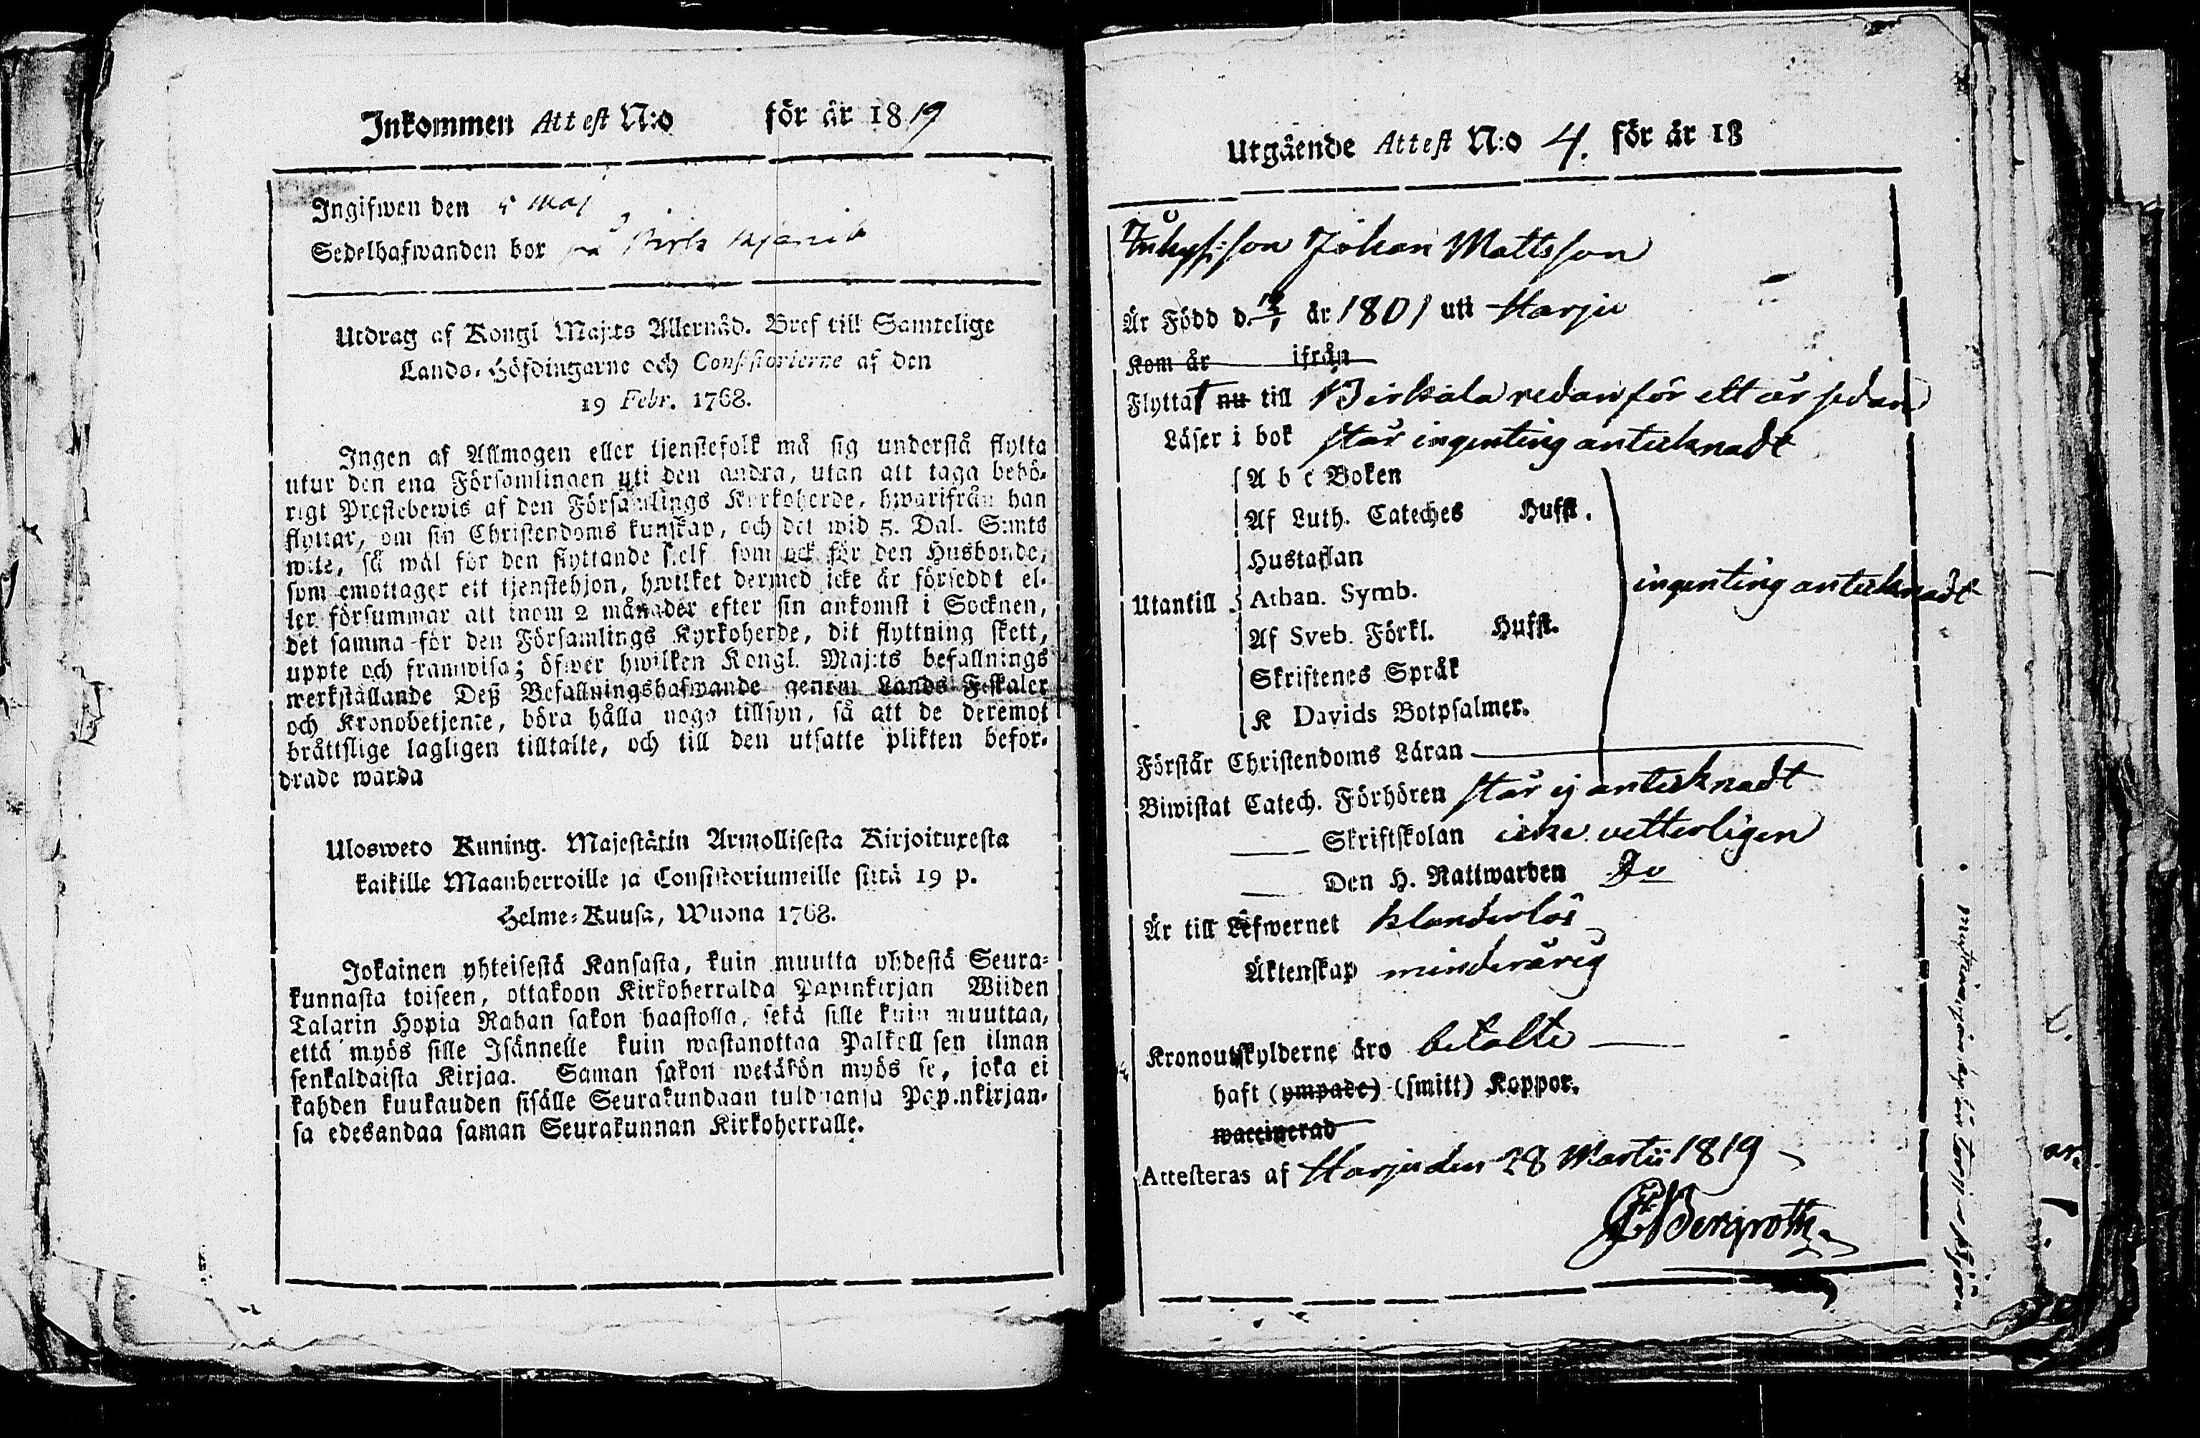 Inkommen Attest N:o för år 1819
Ingifwen den 5 Maj
Sedelhafwanden bor på
Utdrag af Kongl Maj:ts Allernåd. Bref till Samtelige
Lands-Höfdingarne och Consistorierne af den
19 Febr. 1768.
Ingen af Allmogen eller tjenstefolk må sig understå flytta
utur den ena Församlingen uti den andra, utan att taga behö-
rigt Prestebewis af den Församlings Kyrkoherde, hwarifrån han
flyttar, om sin Christendoms kunskap, och det wid 5. Dal. S:mts
wite, så wäl för den flyttande sielf som ock för den Husbonde,
som emottager ett tjenstehjon, hwilket dermed icke är förseddt el-
ler försummar att inom 2 månader efter sin ankomst i Socknen,
det samma för den Församlings Kyrkoherde, dit flyttning skett,
uppte och framwisa; öfwer hwilken Kongl. Maj:ts befallnings
werkställande Deß Befallningshafwande genom Lands Fiskaler
och Kronobetjente, böra hålla noga tillsyn, så att de deremot
bråttslige lagligen tilltalte, och till den utsatte plikten befor-
drade warda
Ulosweto Kuning. Majestätin Armollisesta Kirjoituxesta
kaikille Maanherroille ja Consistoriumeille siitä 19 p.
Helme-Kuusa, Wuona 1768.
Jokainen yhteisestä Kansasta, kuin muutta yhdestä Seura-
kunnasta toiseen, ottakoon Kirkoherralda Papinkirjan Wiiden
Talarin Hopia Rahan sakon haastolla, sekä sille kuin muuttaa,
että myös sille Isännelle kuin wastanottaa Palkoll sen ilman
senkaldaista Kirjaa. Saman sakon wetäkön myös se, joka ei
kahden kuukauden sisälle Seurakundaan tulduansa Papinkirjan-
sa edesandaa saman Seurakunnan Kirkoherralle.
Utgående Attest N:o 4. för år 18
son Johan Mattsson
År Född d. år 1801 uti Harju
Kom år ifrån
Flyttat nu till Birkala redan för ett år sedan
Läser i bok står ingenting anteknadt
A b c Boken
Af Luth. Cateches Hufst.
Hustaflan
Utantill Athan. Symb. ingenting anteknadt
Af Sveb. Förkl. Hufst.
Skriftenes Språk
K Davids Botpsalmer.
Förstår Christendoms Läran
Biwistat Catech. Förhören står ej anteknadt
Skriftskolan icke vetterligen
Den H. Nattwarden Do
Är till Lefwernet klanderlös
Äktenskap minderårig
Kronoutskylderne äro betalte
haft (ympade) (smitt) Koppor.
waccinerad
Attesteras af Harju den 28 Martii 1819
Bergroth